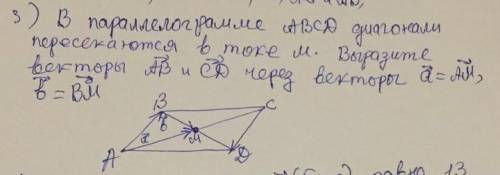 3) В параллелограмме ABCD диагонали
пересекаются в токе М. Выразите
векторы AB и CD через векторы a = AM,
b = BM
B
C
b
a
M
A
D
равна 13